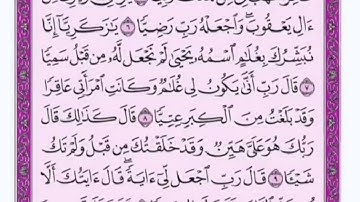 ءَالِ يَعْقُوبَ ۖ وَٱجْعَلْهُ رَبِّ رَضِيًّا ٦ يَٰزَكَرِيَّآ إِنَّا
نُبَشِّرُكَ بِغُلَٰمٍ ٱسْمُهُۥ يَحْيَىٰ لَمْ نَجْعَل لَّهُۥ مِن قَبْلُ سَمِيًّا
٧ قَالَ رَبِّ أَنَّىٰ يَكُونُ لِى غُلَٰمٌ وَكَانَتِ ٱمْرَأَتِى عَاقِرًا
وَقَدْ بَلَغْتُ مِنَ ٱلْكِبَرِ عِتِيًّا ٨ قَالَ كَذَٰلِكَ قَالَ
رَبُّكَ هُوَ عَلَىَّ هَيِّنٌ وَقَدْ خَلَقْتُكَ مِن قَبْلُ وَلَمْ تَكُ
شَيْـًٔا ٩ قَالَ رَبِّ ٱجْعَل لِّىٓ ءَايَةً ۚ قَالَ ءَايَتُكَ أَلَّا